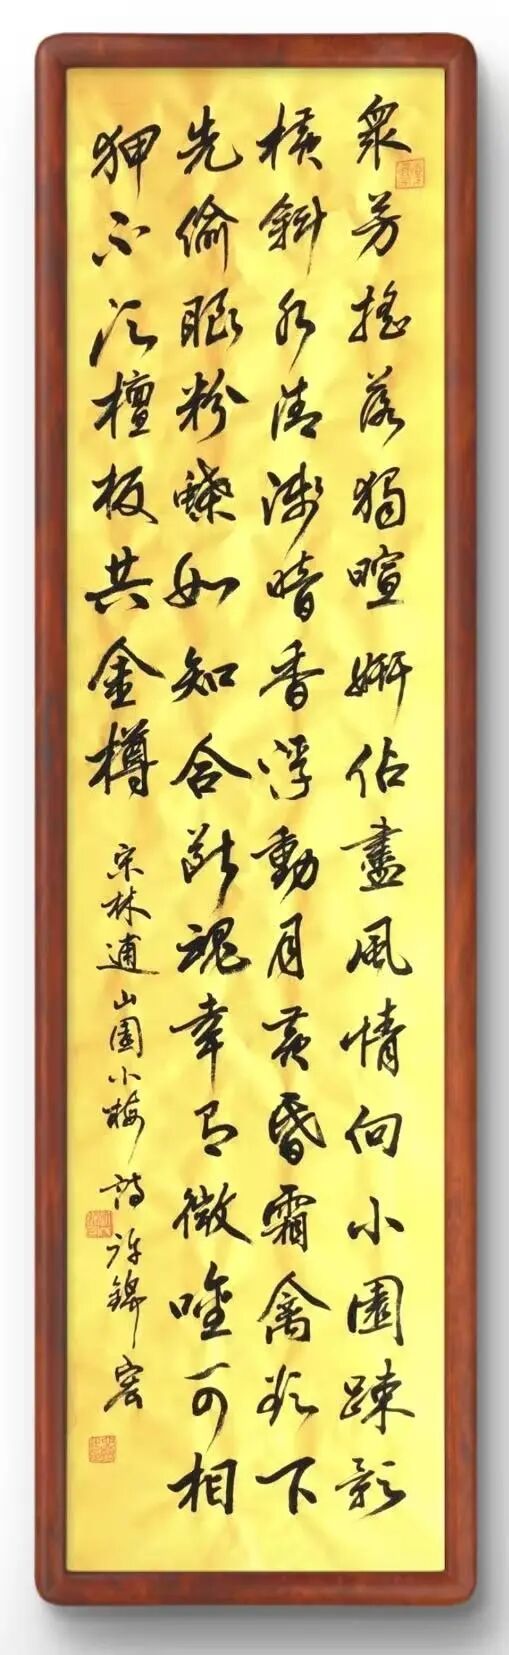 衆芳搖落獨暄妍佔盡風情向小園疎影
橫斜水清淺暗香浮動月黃昏霜禽欲下
先偷眼粉蝶如知合断魂幸有微唫可相
狎不須檀板共金樽 宋林逋山園小梅詩 許錦宏